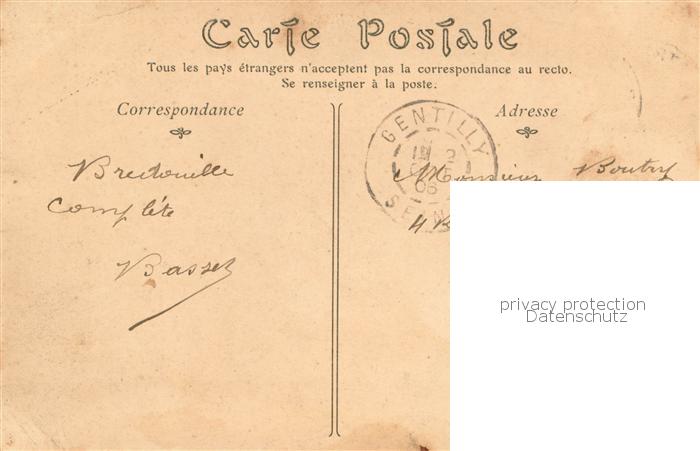 Carte Postale
Tous les pays étrangers n'acceptent pas la correspondance au recto.
Se renseigner à la poste.
Correspondance
Adresse
GENTILLY
06
SEINE
Bredouille
Complète
Basset
Monsieur Boutry
4
privacy protection
Datenschutz